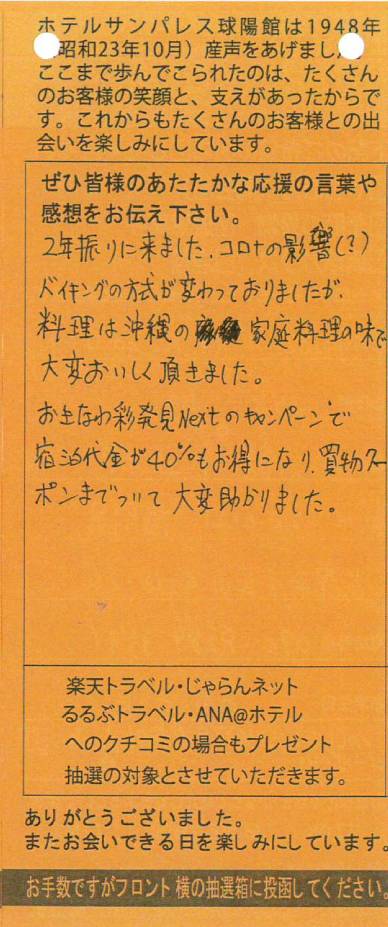 ホテルサンパレス球陽館は1948年
昭和23年10月）産声をあげまし
ここまで歩んでこられたのは、たくさん
のお客様の笑顔と、支えがあったからで
す。これからもたくさんのお客様との出
会いを楽しみにしています。
ぜひ皆様のあたたかな応援の言葉や
感想をお伝え下さい。
2年振りに来ました、コロナの影響(?)
バイキングの方式が変わっておりましたが、
料理は沖縄の家庭料理の味で
大変おいしく頂きました。
おきなわ彩発見Nextのキャンペーンで
宿泊代金が40%もお得になり、買物クー
ポンまでついて大変助かりました。
楽天トラベル・じゃらんネット
るるぶトラベル・ANA@ホテル
へのクチコミの場合もプレゼント
抽選の対象とさせていただきます。
ありがとうございました。
またお会いできる日を楽しみにしています。
お手数ですがフロント横の抽選箱に投函してください。